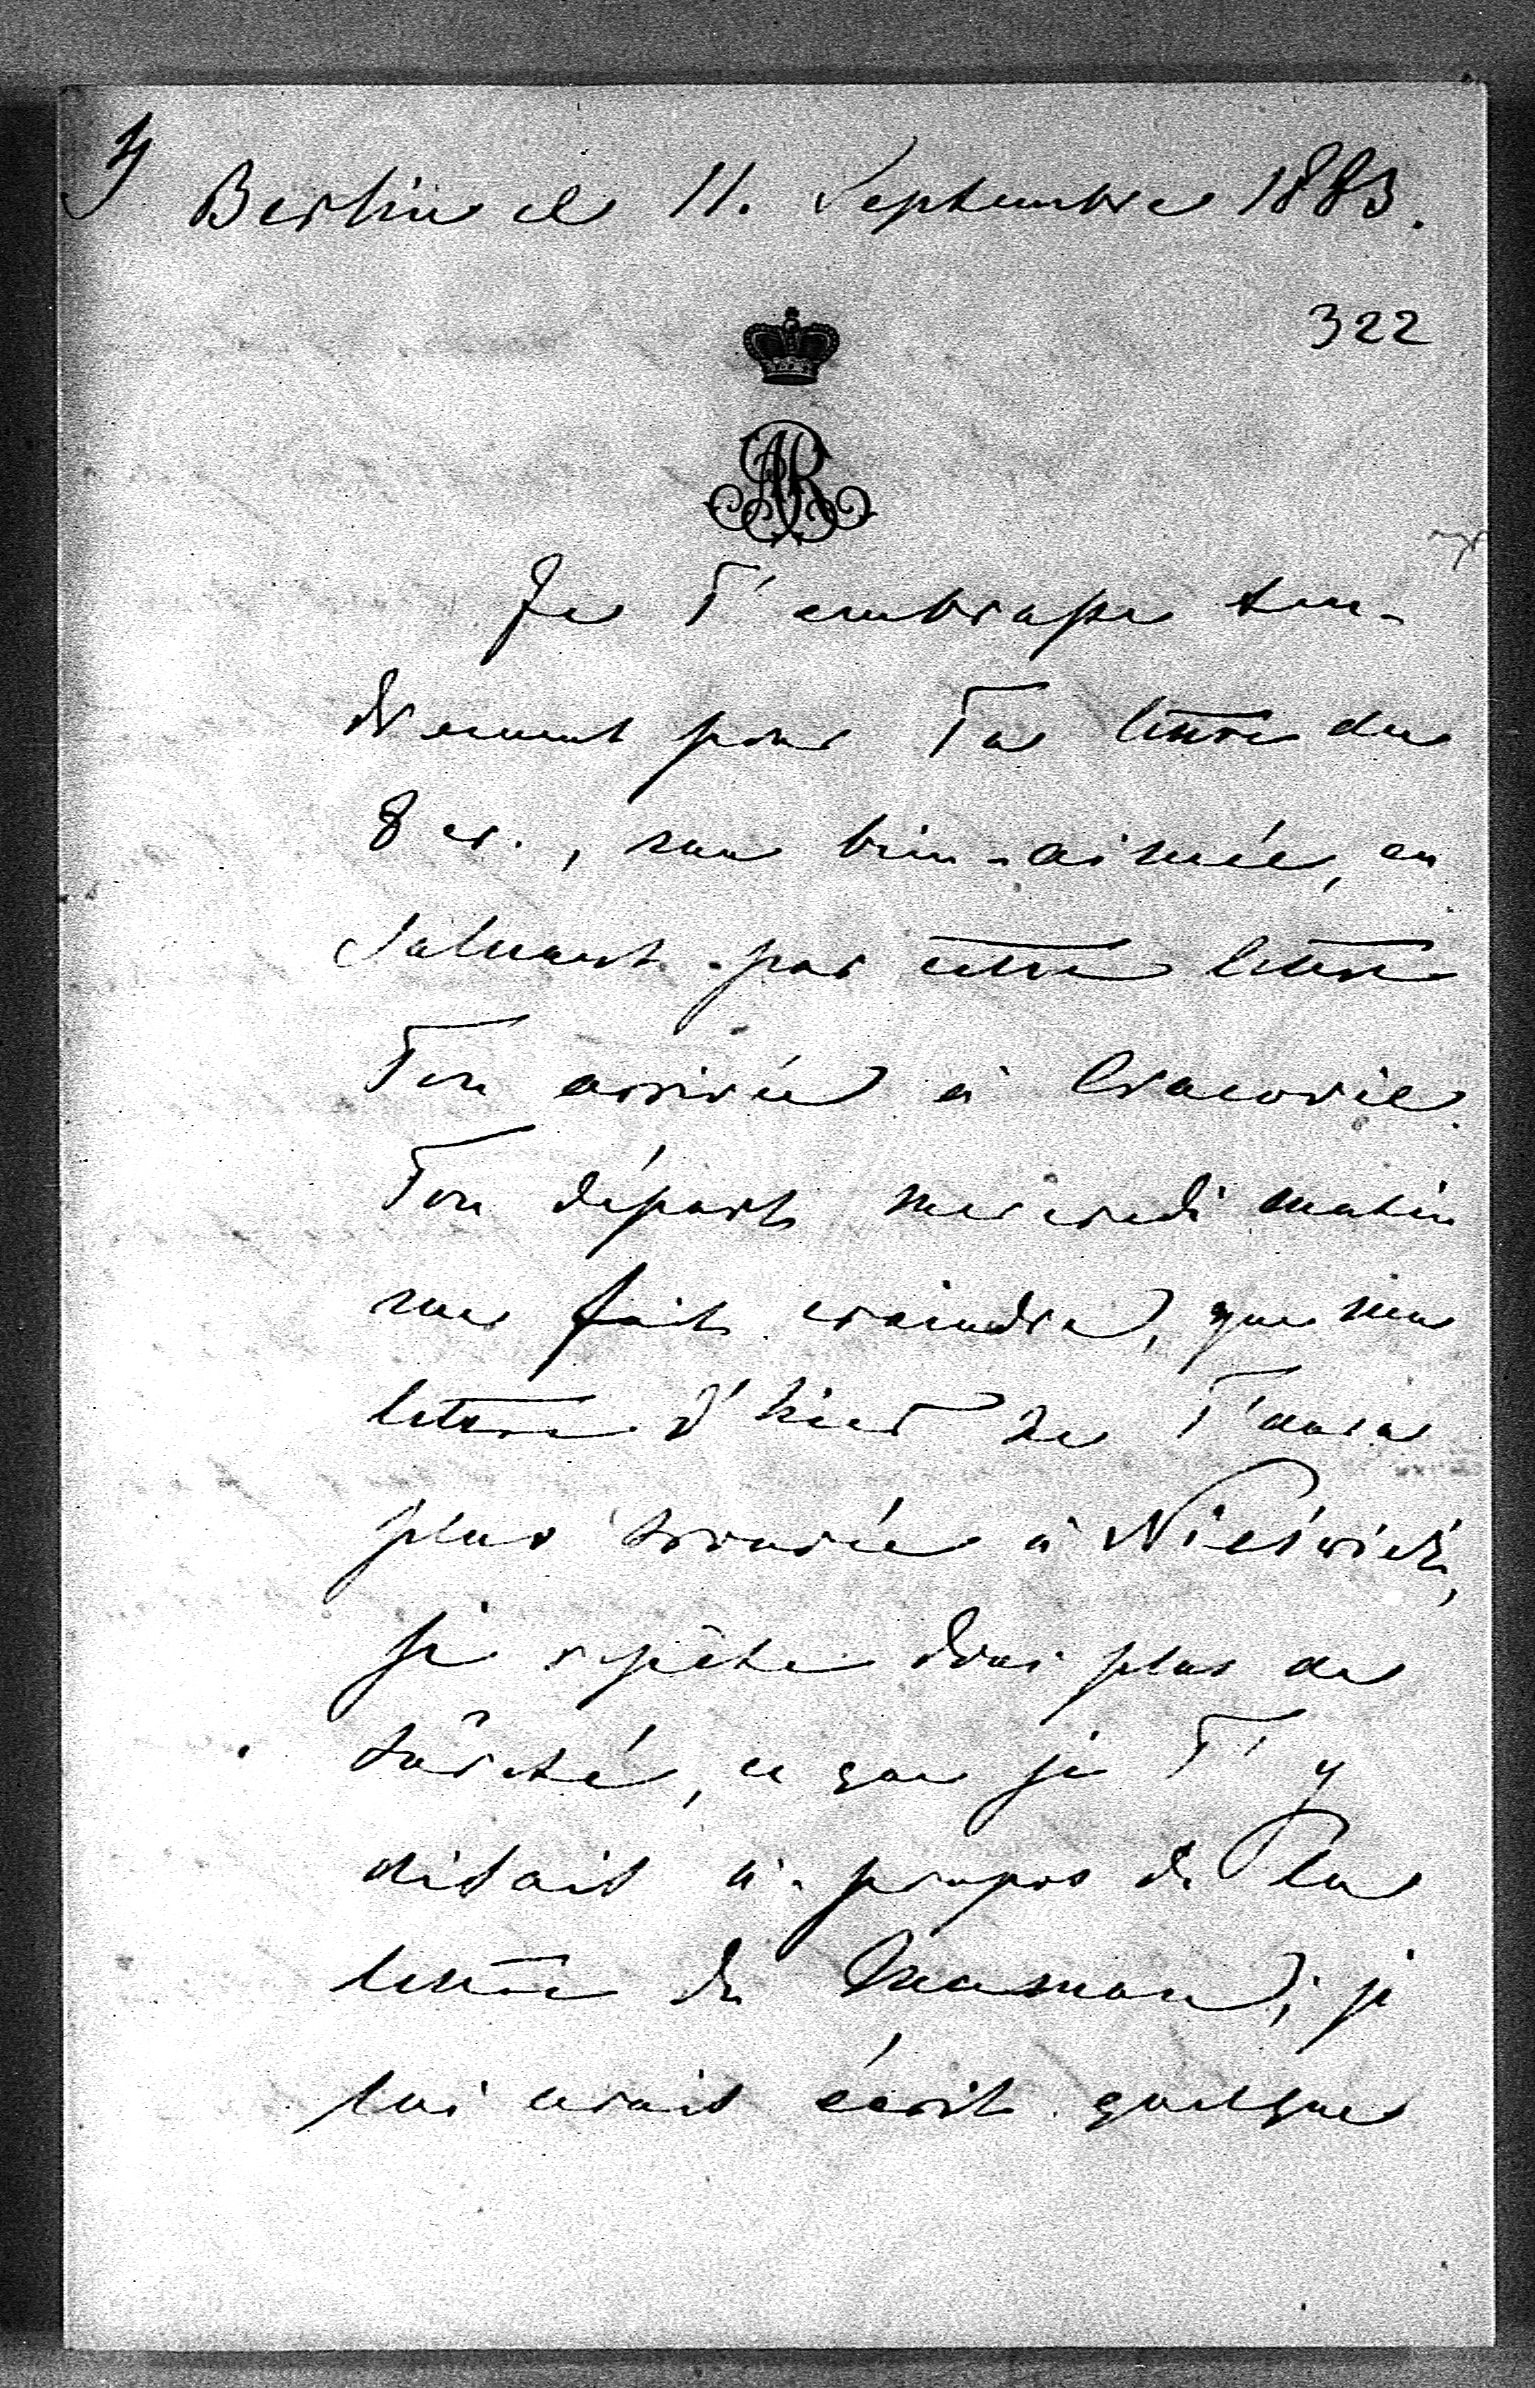 4
Berlin ce 11. Septembre 1883.
322
AR
Je T'embrasse ten-
drement pour Ta lettre du
8 cr., ma bien-aimée, en
saluant par cette lettre
Ton arrivée à Cracovie.
Ton départ mercredi matin
me fait craindre, que ma
lettre d'hier ne T'aura
plus trouvée à Nieśwież,
je répète donc plus de
sûreté, ce que je T'y
disais à-propos de la
lettre de Maman; je
lui avais écrit quelques